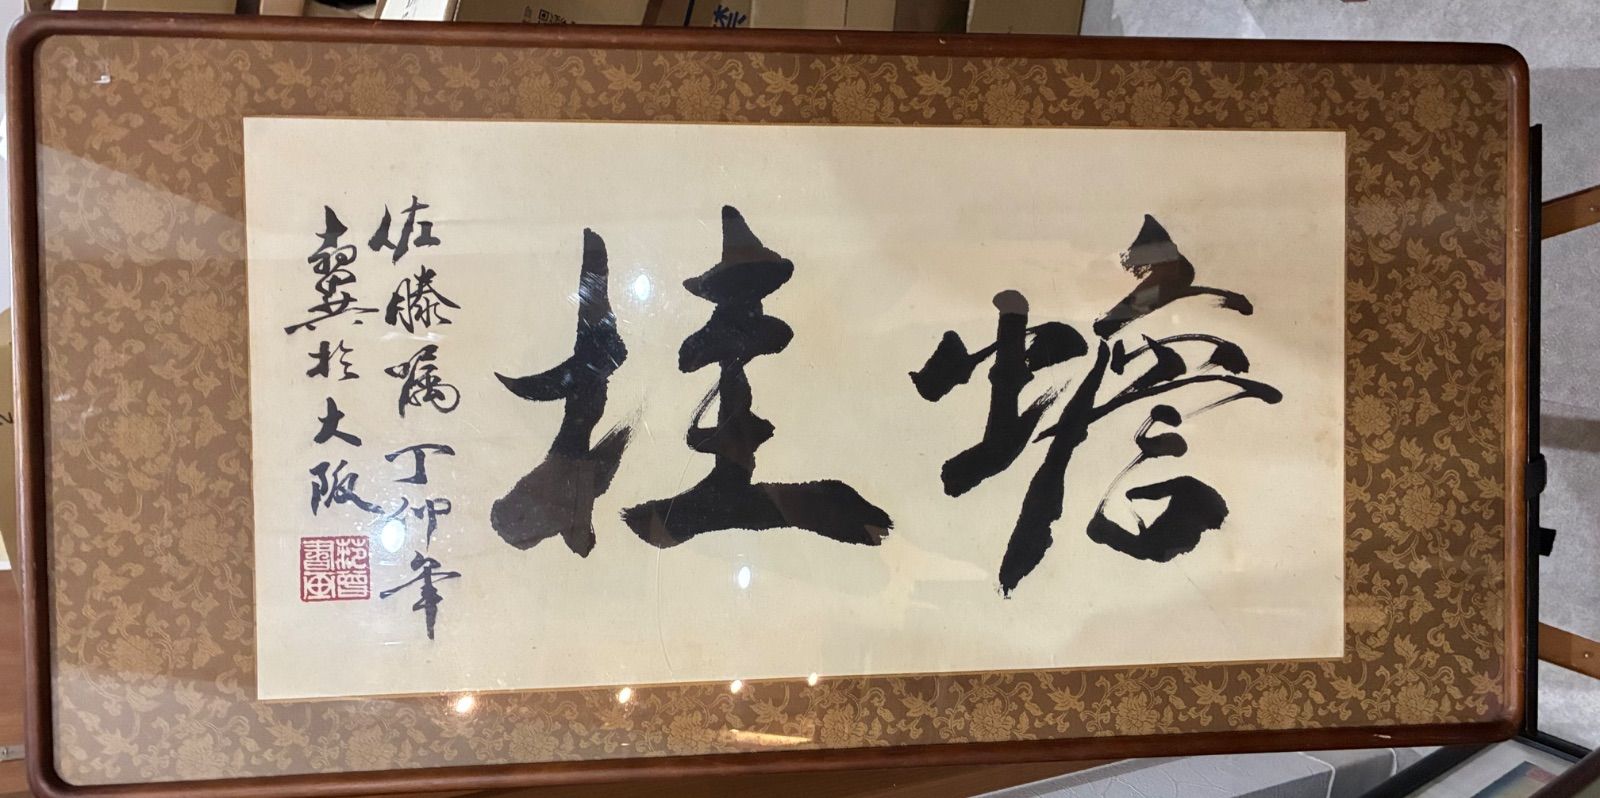 蟾桂
佐藤嘱丁卯年
翼於大阪